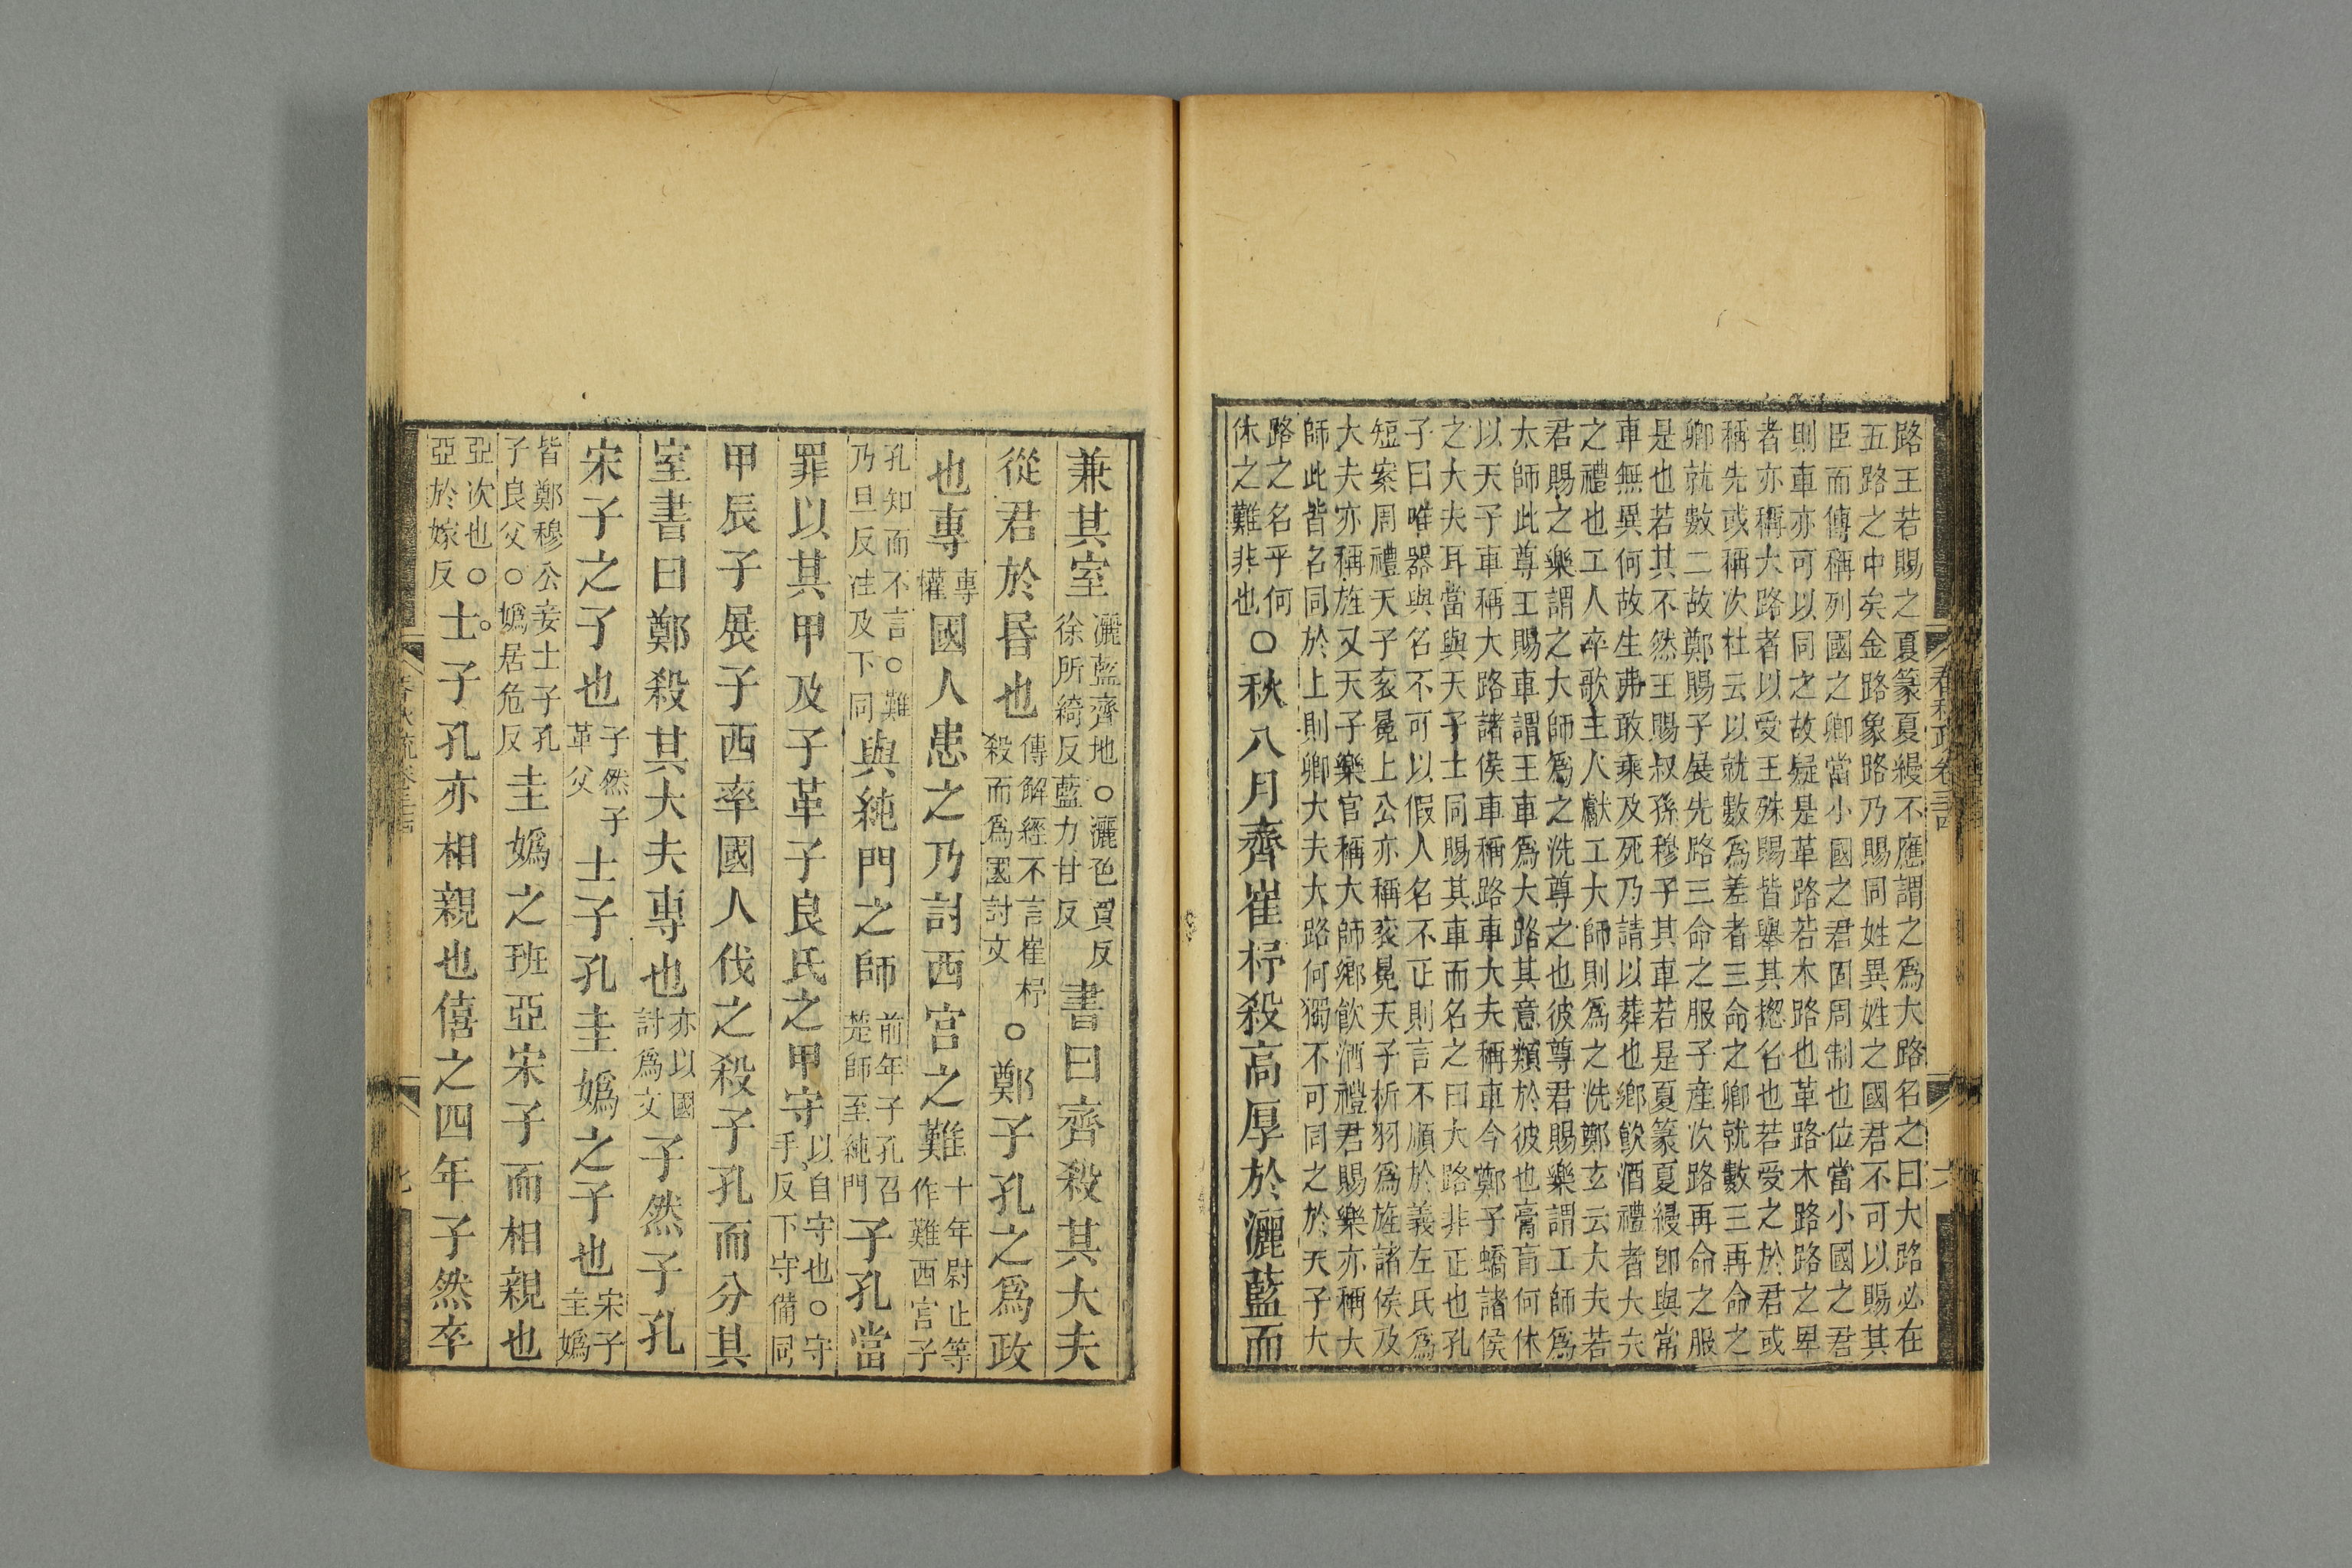 路王若賜之夏篆夏縵不應謂之爲大路名之曰大路必在
五路之中矣金路象路乃賜同姓異姓之國君不可以賜其
臣而傳稱列國之卿當小國之君固周制也位當小國之君
則車亦可以同之故疑是革路若木路也革路木路路之卑
者亦稱大路者以受王殊賜皆舉其揔名也若受之於君或
稱先或稱次杜云以就數爲差者三命之卿就數三再命之
卿就數二故鄭賜子展先路三命之服子産次路再命之服
是也若其不然王賜叔孫穆子其車若是夏篆夏縵卽與常
車無異何故生弗敢乘及死乃請以葬也鄉飮酒禮者大夫
之禮也工人卒歌主人獻工大師則爲之洗鄭玄云大夫若
君賜之樂謂之大師爲之洗尊之也彼尊君賜樂謂工師爲
太師此尊王賜車謂王車爲大路其意類於彼也膏肓何休
以天子車稱大路諸侯車稱路車大夫稱車今鄭子蟜諸侯
之大夫耳當與天子士同賜其車而名之曰大路非正也孔
子曰唯器與名不可以假人名不正則言不順於義左氏爲
短案周禮天子衮冕上公亦稱衮冕天子析羽爲旌諸侯及
大夫亦稱旌又天子樂官稱大師鄉飮酒禮君賜樂亦稱大
師此皆名同於上則卿大夫大路何獨不可同之於天子大
路之名乎何
休之難非也○秋八月齊崔杼殺高厚於灑藍而
兼其室灑藍齊地○灑色買反
徐所綺反藍力甘反書曰齊殺其大夫
從君於昏也傳解經不言崔杼
殺而爲國討文○鄭子孔之爲政
也專專
懽國人患之乃討西宫之難十年尉止等
作難西宫子
孔知而不言○難
乃旦反注及下同與純門之師前年子孔召
楚師至純門子孔當
罪以其甲及子革子良氏之甲守以自守也○守
手反下守備同
甲辰子展子西率國人伐之殺子孔而分其
室書曰鄭殺其大夫專也亦以國
討爲文子然子孔
宋子之子也子然子
革父士子孔圭嬀之子也宋子
圭嬀
皆鄭穆公妾士子孔
子良父○嬀居危反圭嬀之班亞宋子而相親也
亞次也○
亞於嫁反士子孔亦相親也僖之四年子然卒